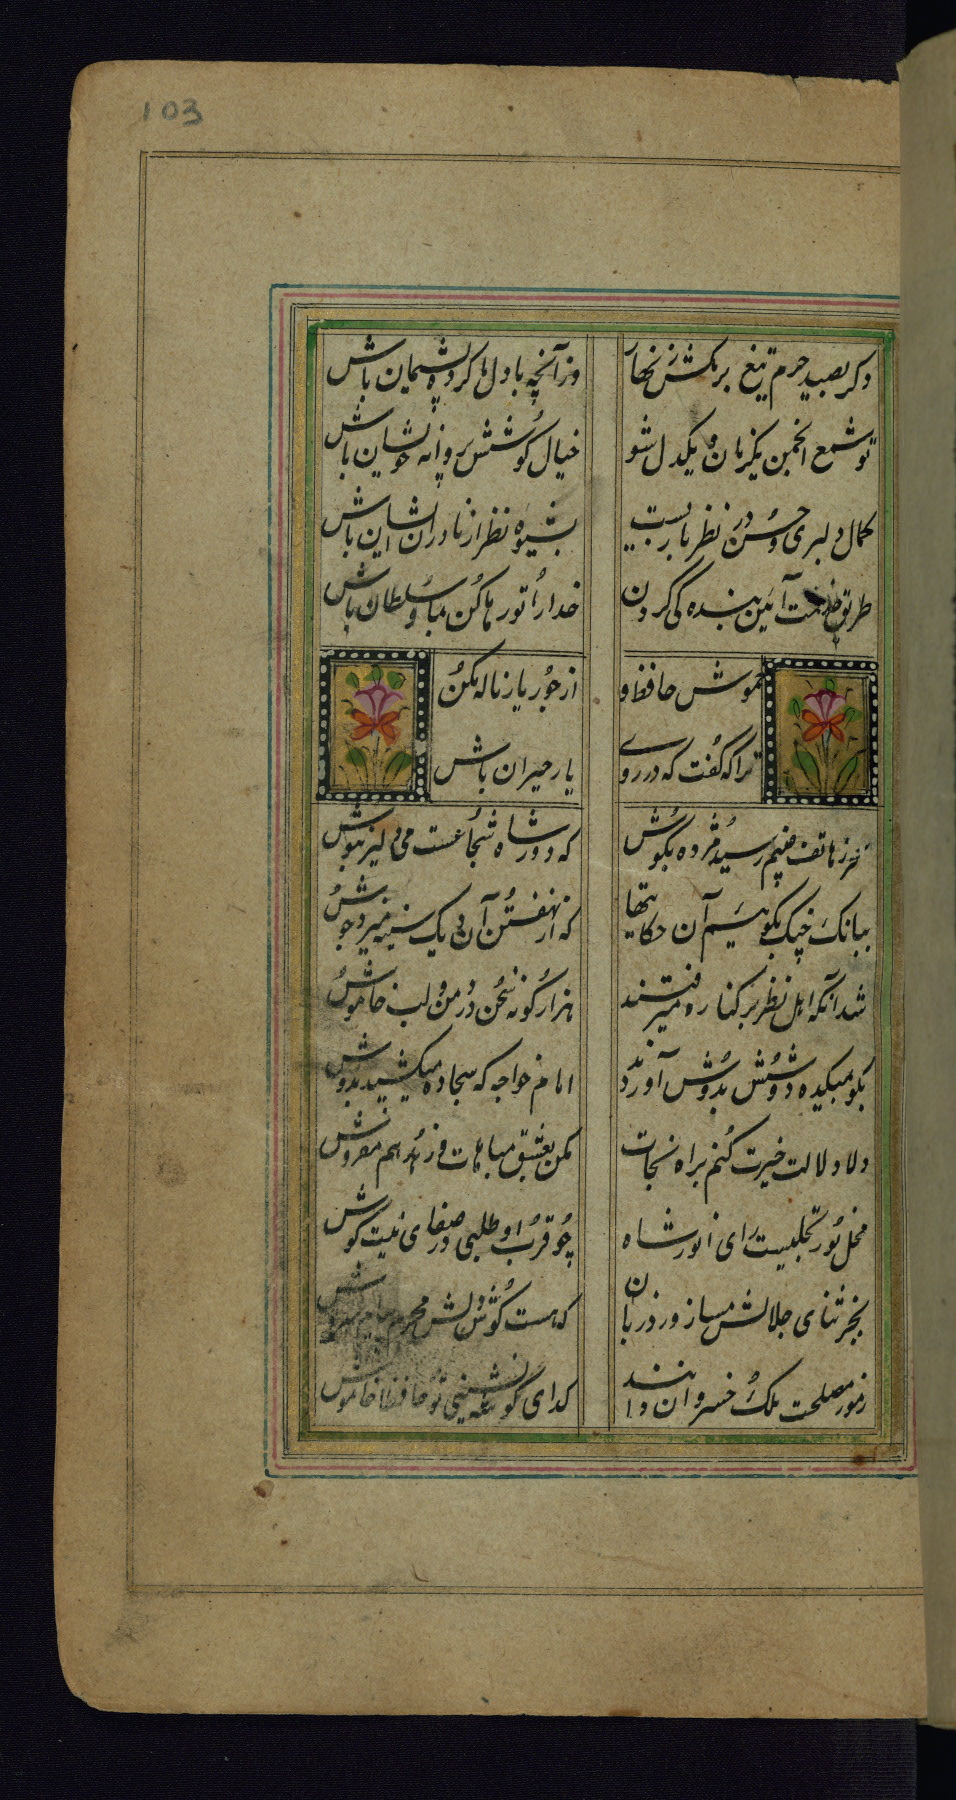 103
دکر بصید حرم تیغ برمکش زنهار
وزآنچه بادل ما کردهٔ پشیمان باش
تو شمع انجمنی یکزبان و یکدل شو
خیال کوشش پروانه بین و خندان باش
کمال دلبری و حسن در نظر بازیست
بشیوه نظر از نادران دوران باش
طریق خدمت و آئین بنده کی کردن
خدارا تو رها کن بما و سلطان باش
خموش حافظ و
از جور یار ناله مکن
ترا که گفت که در روی
یار حیران باش
سحر ز هاتف غیبم رسید مژده بگوش
که دور شاه شجاعست می دلیر بنوش
ببانک چنک بگوئیم آن حکایتها
که از نهفتن آن دیک سینه میزد جوش
شد آنکه اهل نظر بر کناره میرفتند
هزار گونه سخن در دهن و لب خاموش
بکو میکده دوشش بدوش آوردند
امام خواجه که سجاده میکشید بدوش
دلا دلالت خیرت کنم براه نجات
مکن بفسق مباهات و زهد هم مفروش
محل نور تجلیست رای انور شاه
چو قرب او طلبی در صفای نیت کوش
بجز ثنای جلالش مساز ورد زبان
که هست گوش دلش محرم پیام سروش
رموز مصلحت ملک خسروان دانند
کدای گوشه نشینی تو حافظا خاموش